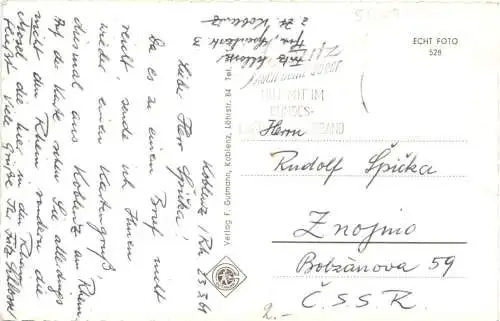 Koblenz / Rh. 23.3.69
Lieber Herr Špička!
Da es zu einem Brief nicht
reicht, sende ich Ihnen
wieder einen Kartengruß,
diesmal aus Koblenz am Rhein.
Auf der Karte sehen Sie allerdings
nicht den Rhein sondern die
Mosel die hier in den Rhein
fließt. Viele Grüße Ihr Fritz
z. Zt. Koblenz
Verlag F. Gutmann, Koblenz, Löhrstr. 84 Tel.
ECHT FOTO
528
MIT IM
BUNDES-
Herrn
Rudolf Špička
Znojmo
Bolzánova 59
Č.S.S.R.
2.-